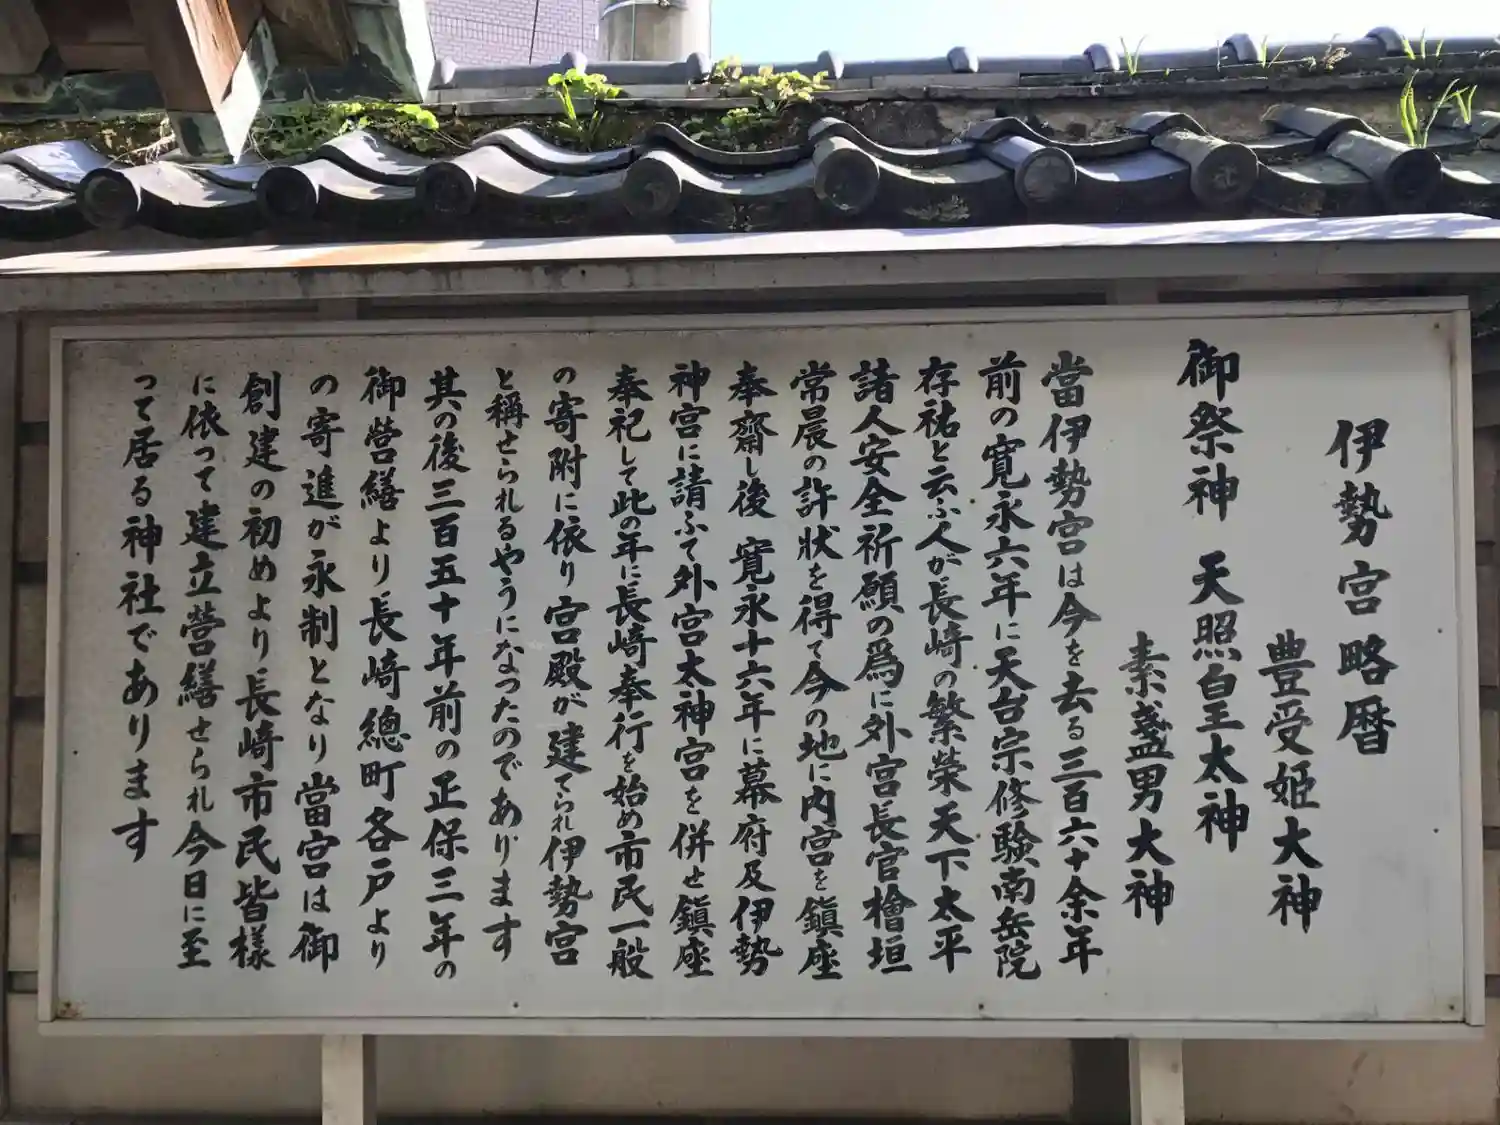 伊勢宮略暦
豊受姫大神
御祭神 天照皇太神
素盞男大神
當伊勢宮は今を去る三百六十余年
前の寛永六年に天台宗修験南岳院
存祐と云ふ人が長崎の繁榮天下太平
諸人安全祈願の爲に外宮長官檜垣
常晨の許状を得て今の地に内宮を鎭座
奉齋し後 寛永十六年に幕府及伊勢
神宮に請ふて外宮太神宮を併せ鎭座
奉祀して此の年に長崎奉行を始め市民一般
の寄附に依り宮殿が建てられ伊勢宮
と稱せられるやうになつたのであります
其の後三百五十年前の正保三年の
御営繕より長崎總町各戸より
の寄進が永制となり當宮は御
創建の初めより長崎市民皆様
に依つて建立営繕せられ今日に至
つて居る神社であります